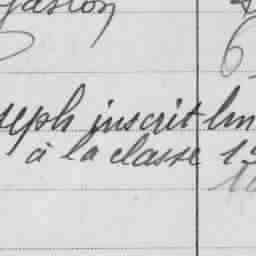 Gaston
seph inscrit
à la classe 19